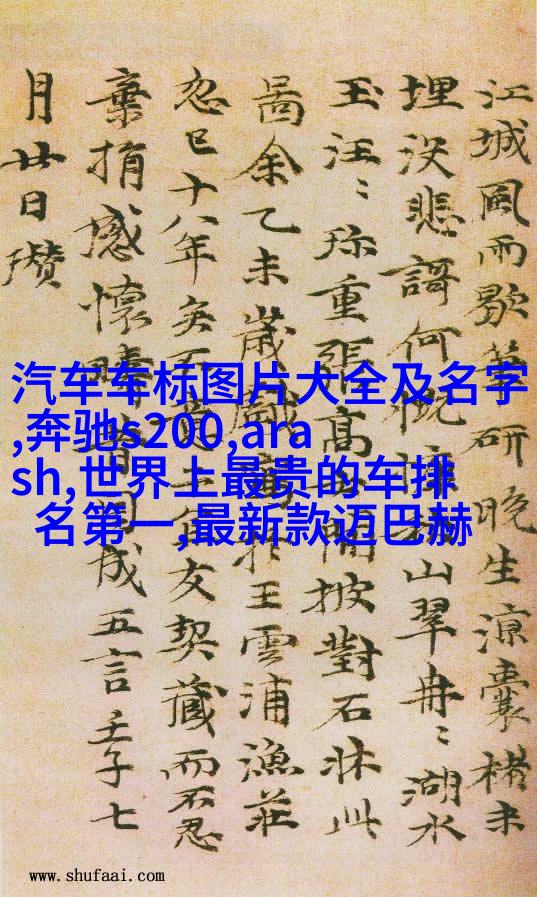 江城風雨歇筆研晚生涼囊楮未
埋没悲謌何慨
山翠冉〻湖水
玉汪〻珎重張高
披對石牀此
啚余乙未歲戲
於王雲浦漁莊
忽已十八年矣不
友契藏而不忍
棄捐感懷疇昔
成五言壬子七
月廿日瓚
汽车车标图片大全及名字
,奔驰s200,ara
sh,世界上最贵的车排
名第一,最新款迈巴赫
www.shufaai.com